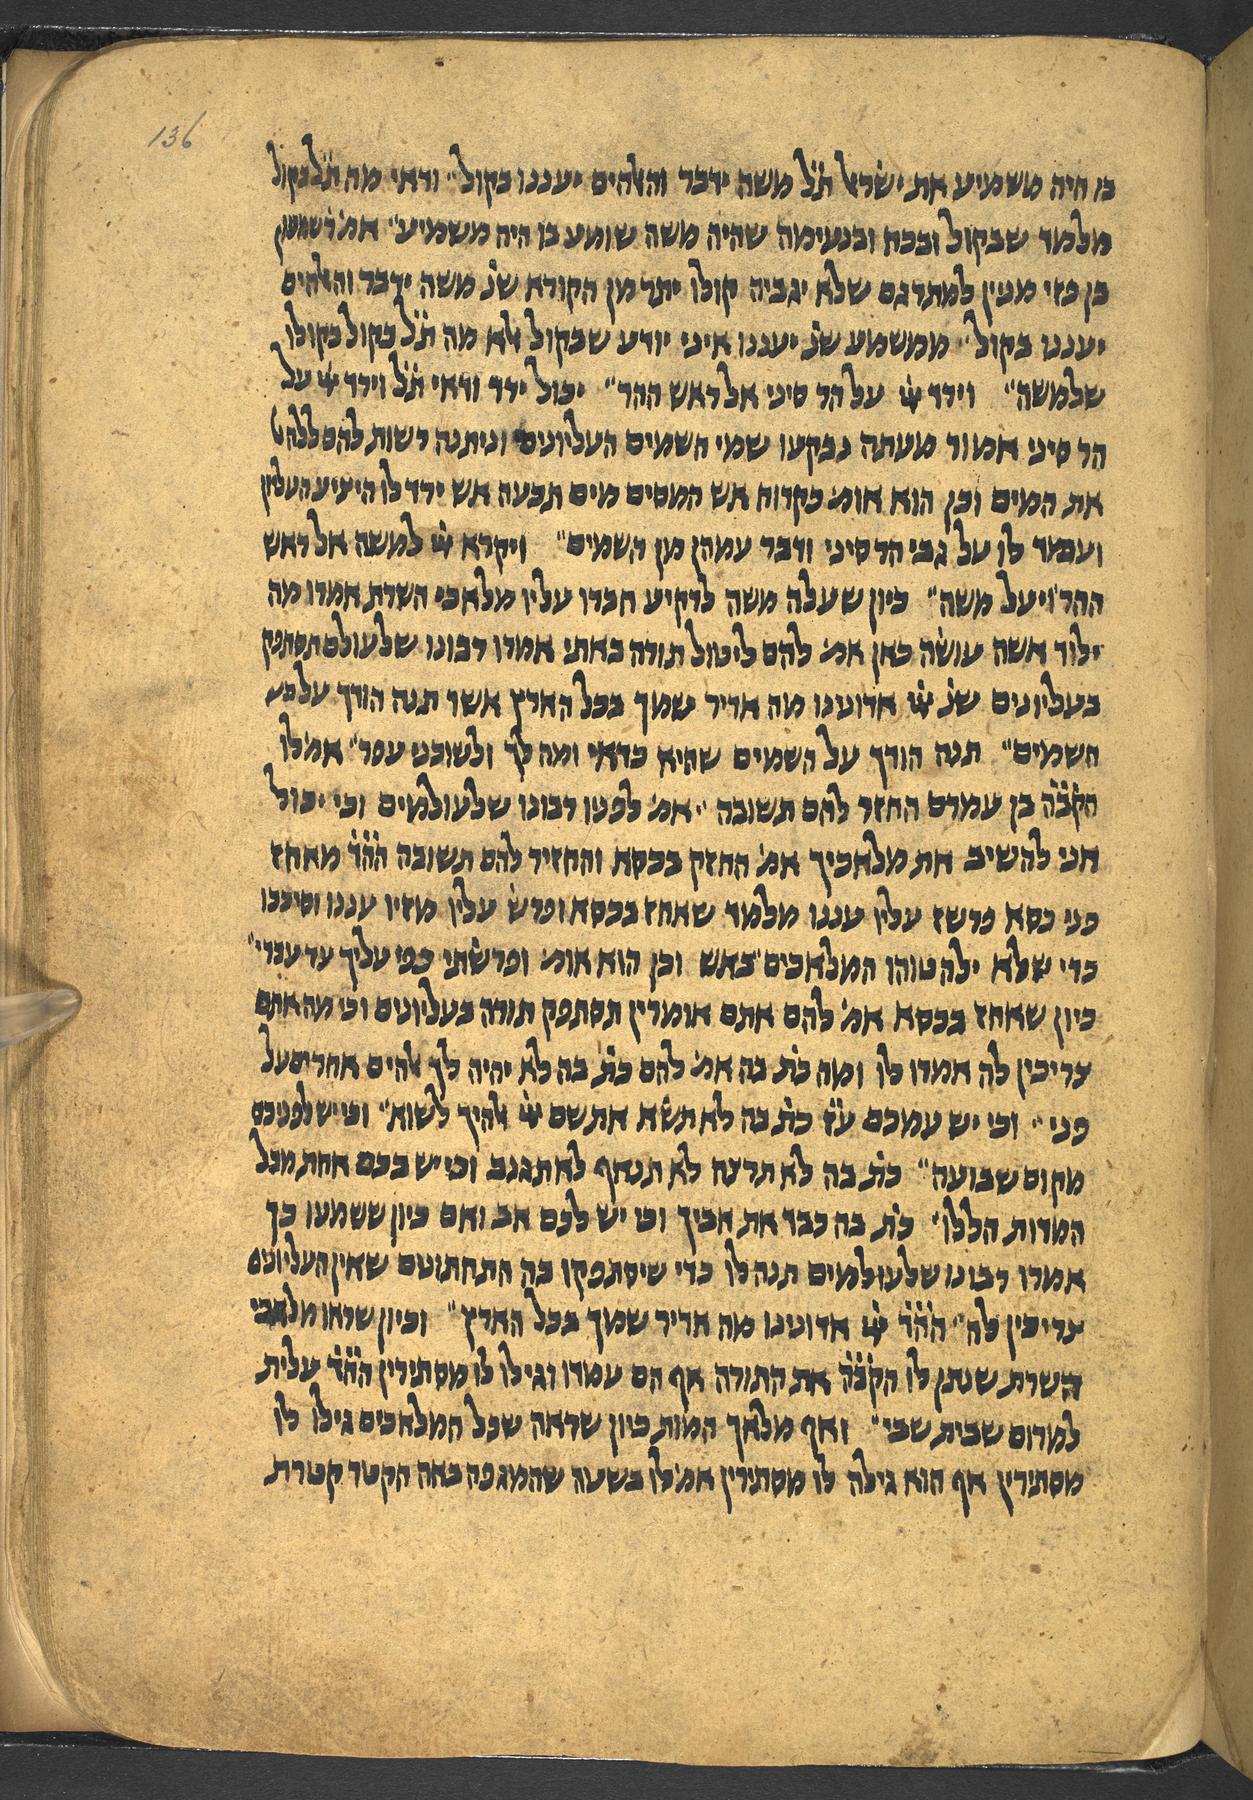 136
בו היה משמיע את ישראל ת̇ל̇ משה ידבר והאלהים יעננו בקול״ ודאי מה ת̇ל̇ בקול
מלמד שבקול ובכח ובנעימה שהיה משה שומע בו היה משמיע״ אמ׳ ר׳ שמעון
בן פזי מנין למתרגם שלא יגביה קולו יתר מן הקורא שנ̇ משה ידבר והאלהים
יעננו בקול״ ממשמע שנ̇ יעננו איני יודע שבקול אלא מה ת̇ל̇ בקול בקולו
שלמשה״ וירד ייי על הר סיני אל ראש ההר״ יכול ירד ודאי ת̇ל̇ וירד ייי על
הר סיני אמור מעתה נבקעו שמי השמים העליונים וניתנה רשות להם ללהט
את המים וכן הוא אומ׳ כקדוח אש המסים מים תבעה אש ירד לו היציע העליון
ועמד לו על גבי הר סיני ודבר עמהן מן השמים״ ויקרא ייי למשה אל ראש
ההר ויעל משה״ כיון שעלה משה לרקיע חברו עליו מלאכי השרת אמרו מה
ילוד אשה עושה כאן אמ׳ להם ליטול תורה באתי אמרו רבונו שלעולם תסתפק
בעליונים שנ̇ ייי אדונינו מה אדיר שמך בכל הארץ אשר תנה הודך על
השמים״ תנה הודך על השמים שהיא כדאי ומה לך ולשוכני עפר״ אמ׳ לו
הק̇ב̇ה̇ בן עמרם החזר להם תשובה״ אמ׳ לפניו רבונו שלעולמים וכי יכול
אני להשיב את מלאכיך אמ׳ החזק בכסא והחזיר להם תשובה ה̇ה̇ד̇ מאחז
פני כסא פרשז עליו עננו מלמד שאחז בכסא ופרש עליו מזיו עננו וסיככו
כדי שלא ילהטוהו המלאכים באש וכן הוא אומ׳ ופרשתי כפי עליך עד עברי״
כיון שאחז בכסא אמ׳ להם אתם אומרין תסתפק תורה בעליונים וכי מה אתם
צריכין לה אמרו לו ומה כת̇ בה אמ׳ להם כת̇ בה לא יהיה לך אלהים אחרים על
פני״ וכי יש עמכם ע̇ז̇ כת̇ בה לא תשא את שם ייי אלהיך לשוא״ וכי יש לפניכם
מקום שבועה״ כת̇ בה לא תרצח לא תנאף לא תגנב וכי יש בכם אחת מכל
המדות הללו״ כת̇ בה כבד את אביך וכי יש לכם אב ואם כיון ששמעו כך
אמרו רבונו שלעולמים תנה לו כדי שיסתפקו בה התחתונים שאין העליונים
צריכין לה״ ה̇ה̇ד̇ ייי אדונינו מה אדיר שמך בכל הארץ״ וכיון שראו מלאכי
השרת שנתן לו הק̇ב̇ה̇ את התורה אף הם עמדו וגילו לו מסתירין ה̇ה̇ד̇ עלית
למרום שבית שבי״ ואף מלאך המות כיון שראה שכל המלאכים גילו לו
מסתירין אף הוא גילה לו מסתירין אמ׳ לו בשעה שהמגפה באה הקטר קטורת